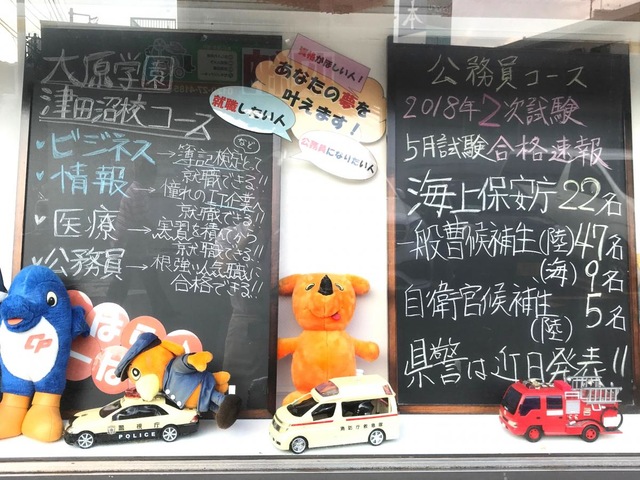 大原学園
津田沼校コース
ビジネス
など
→簿記検定とって
就職できる!!
情報
→憧れのIT企業へ
就職できる!!
医療
→
就職できる!!
公務員
→根強い人気職に
合格できる!!
資格が欲しい人!
あなたの夢を
叶えます!
就職したい人
公務員になりたい人
公務員コース
2018年2次試験
5月試験合格速報
海上保安庁22名
一般曹候補生(陸)47名
(海)9名
自衛官候補生
(陸)5名
県警は近日発表!!
警視庁
POLICE
消防庁救急車